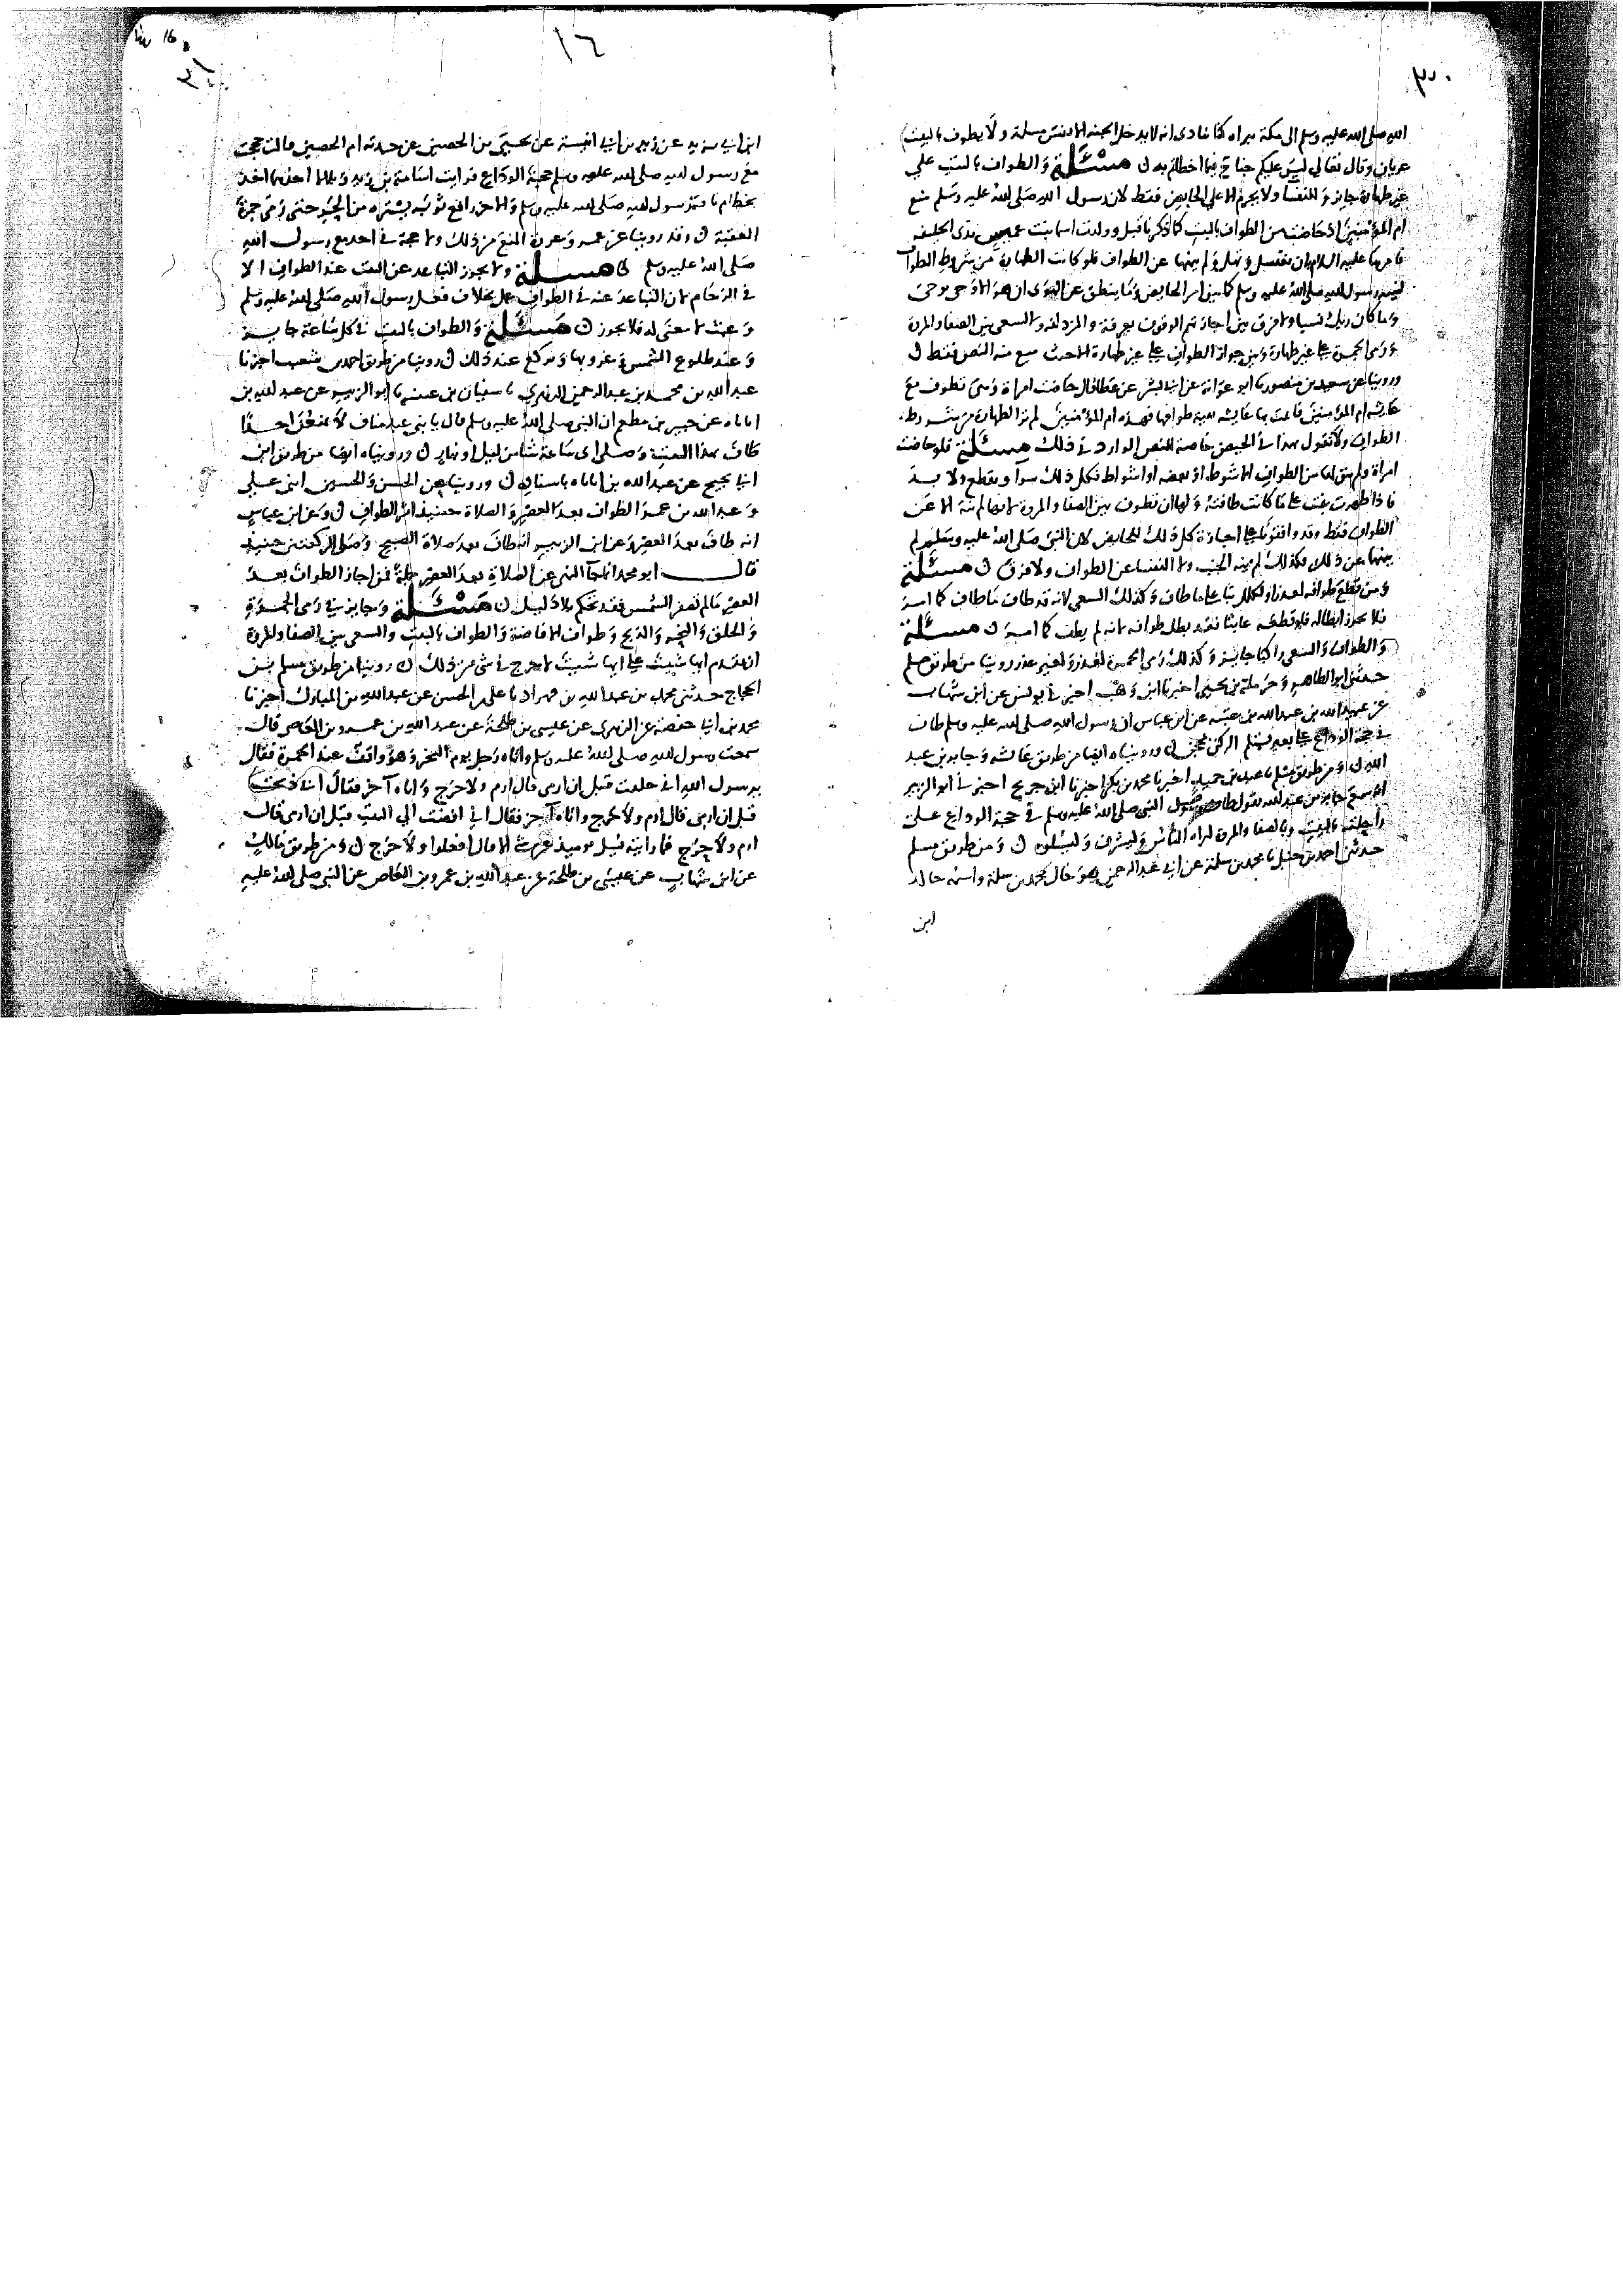 ٣٠
الله صلى الله عليه وسلم الى مكة ببراءة كنا ننادى انه لا يدخل الجنة الا نفس مسلمة ولا يطوف بالبيت
عريان وقال تعالى ليس عليكم جناح فيما اخطاتم به ن مسئلة والطواف بالبيت على
غير طهارة جائز وللنفسا ولا يحرم الا على الحايض فقط لان رسول الله صلى الله عليه وسلم منع
ام المؤمنين اذ حاضت من الطواف بالبيت كما ذكرنا قبل وولدت اسما بنت عميس بذى الحليفة
فامرها عليه السلام بان تغتسل وتهل ولم ينهها عن الطواف فلو كانت الطهارة من شروط الطواف
لبينه رسول الله صلى الله عليه وسلم كما بين امر الحايض وما ينطق عن الهوى ان هو الا وحى يوحى
وما كان ربك نسيا ولا فرق بين اجازتهم الوقوف بعرفة والمزدلفة والسعى بين الصفا والمروة
ورمى الجمرة على غير طهارة وبين جواز الطواف على غير طهارة الا حيث منع منه النص فقط ن
وروينا عن سعيد بن منصور نا ابو عوانة عن ابى بشر عن عطا قال حاضت امراة وهى تطوف مع
عائشة ام المؤمنين فاتمت بها عايشة بقية طوافها فهذه ام المؤمنين لم تر الطهارة من شروط
الطواف ولا نقول بهذا فى الحيض خاصة للنص الوارد فى ذلك مسئلة فلو حاضت
امراة ولم يبق لها من الطواف الا شوط او بعضه او اشواط فكل ذلك سوآ وتقطع ولا بد
فاذا طهرت بنت على ما كانت طافته ولها ان تطوف بين الصفا والمروة لانها لم تنه الا عن
الطواف فقط وقد وافقونا على اجازة كل ذلك للحايض لان النبى صلى الله عليه وسلم لم
ينهها عن ذلك وكذلك لم ينه الجنب ولا النفسا عن الطواف ولا فرق ن مسئلة
ومن قطع طوافه لعذر او لكلل بنا على ما طاف وكذلك السعى لانه قد طاف ما طاف كما امر
فلا يجوز ابطاله فلو قطعه عابثا فقد بطل طوافه لانه لم يطف كما امر ن مسئلة
والطواف والسعى راكبا جايز وكذلك رمى الجمرة لعذر ولغير عذر روينا من طريق مسلم
حدثنى ابو الطاهر وحرملة بن يحيى اخبرنا ابن وهب اخبرنى يونس عن ابن شهاب
عن عبيد الله بن عبد الله بن عتبة عن ابن عباس ان رسول الله صلى الله عليه وسلم طاف
فى حجة الوداع على بعير يستلم الركن بمحجن ن وروينا ايضا من طريق عائشة وجابر بن عبد
الله ن ومن طريق مسلم نا عبد بن حميد اخبرنا محمد بن بكر اخبرنا ابن جريج اخبرنى ابو الزبير
انه سمع جابر بن عبد الله يقول طاف النبى صلى الله عليه وسلم فى حجة الوداع على
راحلته بالبيت وبالصفا والمروة ليراه الناس وليشرف وليسئلوه ن ومن طريق مسلم
حدثنى احمد بن حنبل نا محمد بن سلمة عن ابى عبد الرحيم هو خال محمد بن سلمة واسمه خالد
ابن
١٦
٣١
ابن ابى يزيد عن زيد بن ابى انيسة عن يحيى بن الحصين عن جدته ام الحصين قالت حججت
مع رسول الله صلى الله عليه وسلم حجة الوداع فرايت اسامة بن زيد وبلالا احدهما اخذ
بخطام ناقة رسول الله صلى الله عليه وسلم والاخر رافع ثوبه يستره من الحر حتى رمى جمرة
العقبة ن وقد روينا عن عمر وعروة المنع من ذلك ولا حجة فى احد مع رسول الله
صلى الله عليه وسلم مسئلة ولا يجوز التباعد عن البيت عند الطواف الا
فى الزحام لان التباعد عنه فى الطواف عمل بخلاف فعل رسول الله صلى الله عليه وسلم
وعبث لا معنى له فلا يجوز ن مسئلة والطواف بالبيت فى كل ساعة جايز
وعند طلوع الشمس وغروبها ويركع عند ذلك ن روينا من طريق احمد بن شعيب اخبرنا
عبد الله بن محمد بن عبد الرحمن الزهرى نا سفيان بن عيينة نا ابو الزبير عن عبد الله بن
اباباه عن جبير بن مطعم ان النبى صلى الله عليه وسلم قال يا بنى عبد مناف لا تمنعن احدا
طاف بهذا البيت وصلى اى ساعة شا من ليل او نهار ن ورويناه ايضا من طريق ابن
ابى نجيح عن عبد الله بن اباباه باسناده ن وروينا عن الحسن والحسين ابنى على
وعبد الله بن عمر الطواف بعد العصر والصلاة حينيذ اثر الطواف ن وعن ابن عباس
انه طاف بعد العصر وعن ابن الزبير انه طاف بعد صلاة الصبح وصلى الركعتين حينيذ
قال ابو محمد انما جآ النهى عن الصلاة بعد العصر جملة فمن اجاز الطواف بعد
العصر ما لم تصفر الشمس فقد تحكم بلا دليل ن مسئلة وجايز فى رمى الجمرة
والحلق والنحر والذبح وطواف الافاضة والطواف بالبيت والسعى بين الصفا والمروة
ان تقدم ايها شيت على ايها شيت لا حرج فى شى من ذلك ن روينا من طريق مسلم بن
الحجاج حدثنى محمد بن عبد الله بن قهزاد نا على بن الحسن عن عبد الله بن المبارك اخبرنا
محمد بن ابى حفصة عن الزهرى عن عيسى بن طلحة عن عبد الله بن عمرو بن العاص قال
سمعت رسول الله صلى الله عليه وسلم واتاه رجل يوم النحر وهو واقف عند الجمرة فقال
يا رسول الله انى حلقت قبل ان ارمى قال ارم ولا حرج واتاه آخر فقال انى ذبحت
قبل ان ارمى قال ارم ولا حرج واتاه آخر فقال انى افضت الى البيت قبل ان ارمى قال
ارم ولا حرج فما رايته سئل يوميذ عن شئ الا قال افعلوا ولا حرج ن ومن طريق مالك
عن ابن شهاب عن عيسى بن طلحة عن عبد الله بن عمرو بن العاص عن النبى صلى الله عليه